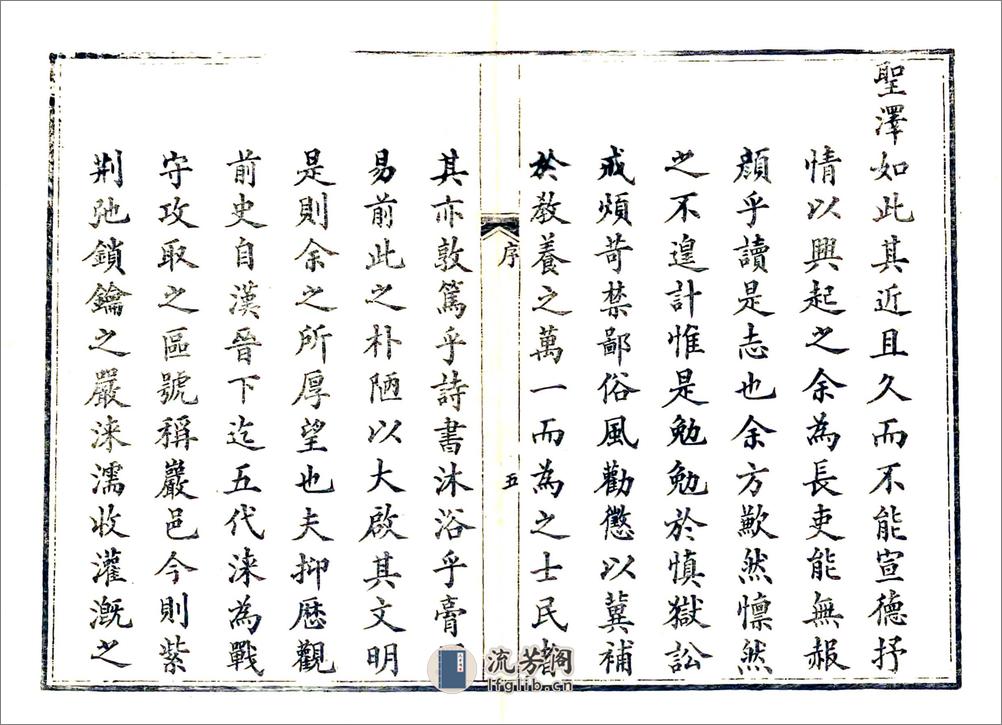 聖澤如此其近且久而不能宣德抒
情以興起之余為長吏能無赧
顔乎讀是志也余方歉然懍然
之不遑計惟是勉勉於慎獄訟
戒煩苛禁鄙俗風勸懲以冀補
於教養之萬一而為之士民者
序
五
其亦敦篤乎詩書沐浴乎膏
易前此之朴陋以大啟其文明
是則余之所厚望也夫抑厯觀
前史自漢晉下迄五代淶為戰
守攻取之區號稱巖邑今則紫
荆弛鎖鑰之嚴淶濡收灌溉之
流芳閣
lfglib.cn